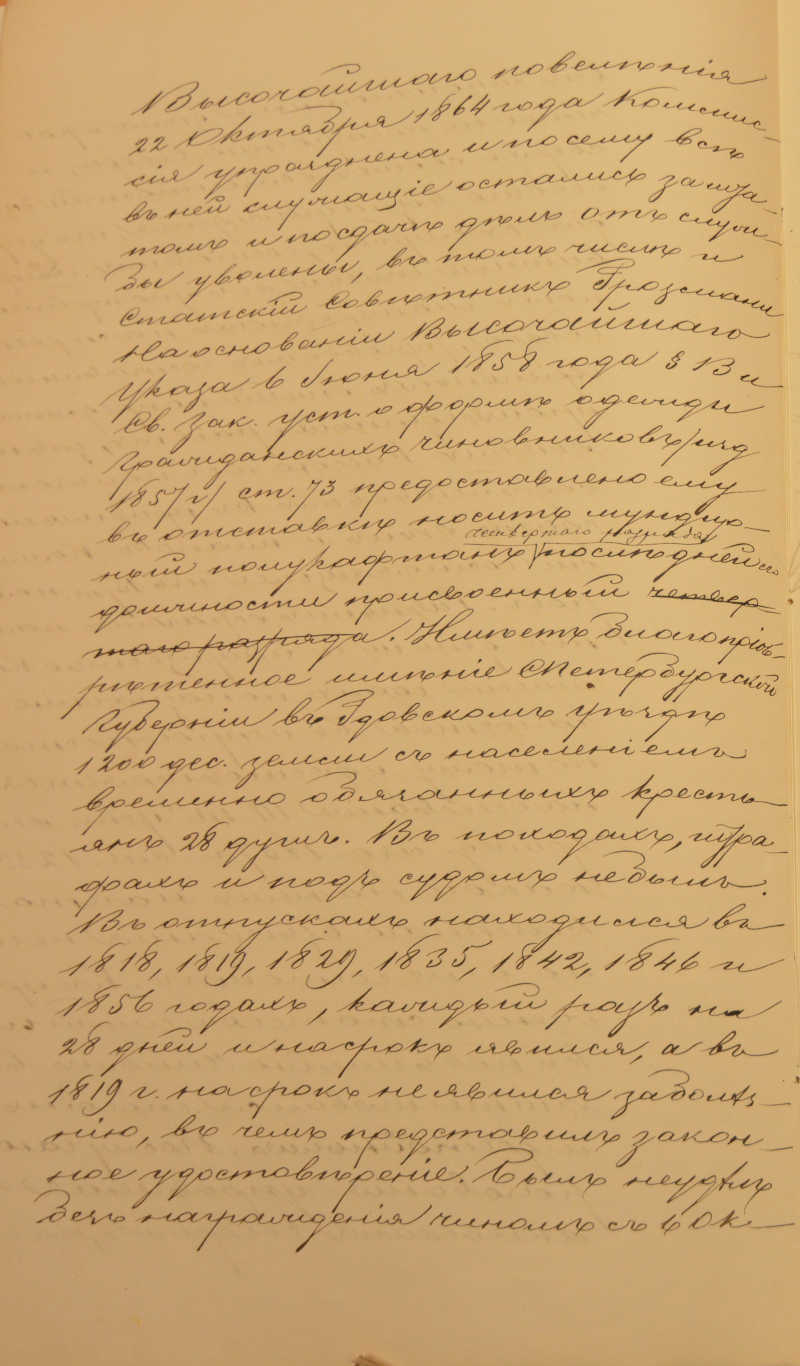 Высочайшаго повелѣнія
22 Октября 1864 года Коммис-
сія упразднена и по сему всѣ
въ ней служащіе остались за шта-
томъ и по сдачѣ дѣлъ отъ служ-
бы уволены, въ томъ числѣ и
Статскій Совѣтникъ
На основаніи Высочайшаго
Указа 6 Іюня 1858 года § 13 и
Св. Зак. уст. о формѣ одежды
гражданскихъ чиновниковъ /изд
1857 г/ ст. 73 предоставлено ему
въ отставкѣ носить мундир-
четвертаго разряда
ный полукафтанъ последней его
должности присвоенный четвер-
таго разряда. Имѣетъ благопріоб-
рѣтенное имѣніе СПетербургской
Губерніи въ Гдовскомъ уѣздѣ
1200 дес. земли съ населеніемъ
временно обязанныхъ кресть-
янъ 28 душъ. Въ походахъ, штра-
фахъ и подъ судомъ небылъ.
Въ отпускахъ находился въ
1818, 1819, 1829, 1835, 1842, 1846 и
1856 годахъ, каждый разъ на
28 дней и на срокъ явился, а въ
1819 г. на срокъ не явился за болѣз-
нію, въ чемъ представилъ закон-
ное удостовѣреніе. Былъ неудѣлъ
безъ награжденія чиномъ съ 6 Ок-